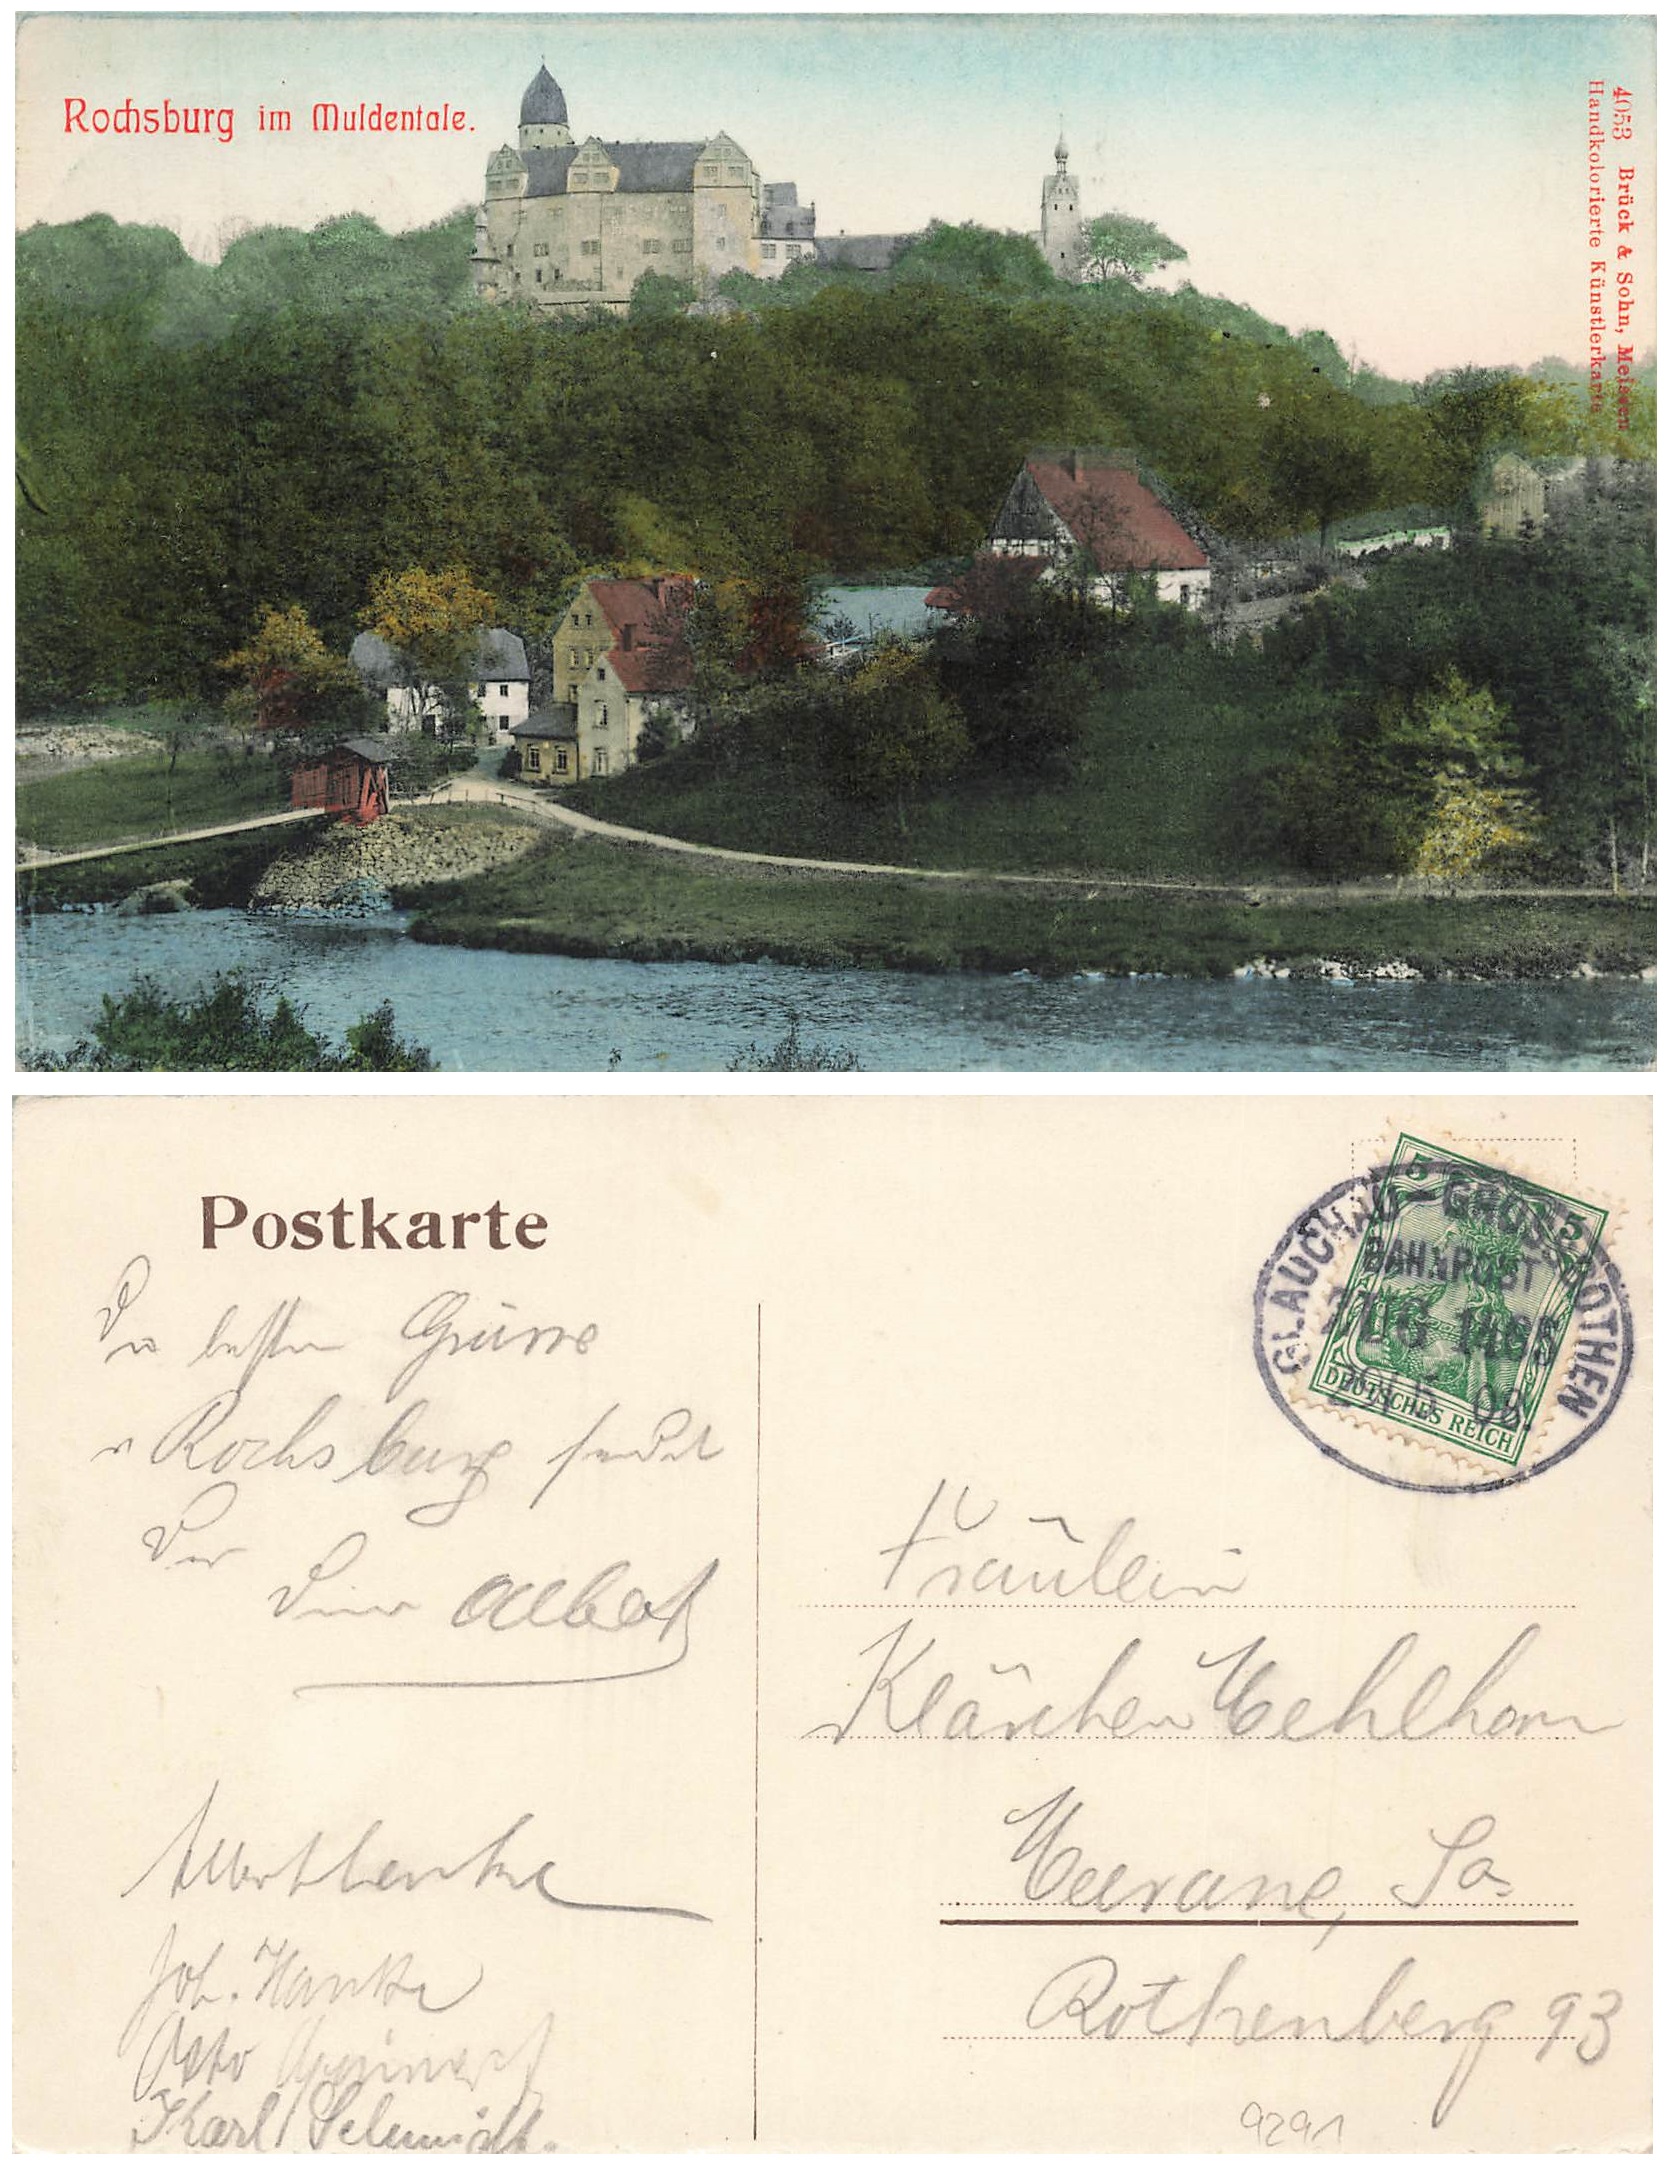 Rochsburg im Muldentale.
4053 Brück & Sohn, Meissen
Handkolorierte Künstlerkarte
Postkarte
Die besten Grüsse
v. Rochsburg sendet
Dir
Dein Albert
GLAUCHAU-GROSSBOTHEN
BAHNPOST
ZUG
08.
5 5
DEUTSCHES REICH
Fräulein
Klärchen Mehlhorn
Meerane, Sa.
Rothenberg 93
Joh. Hanke
Otto
Karl Schmidt.
9291